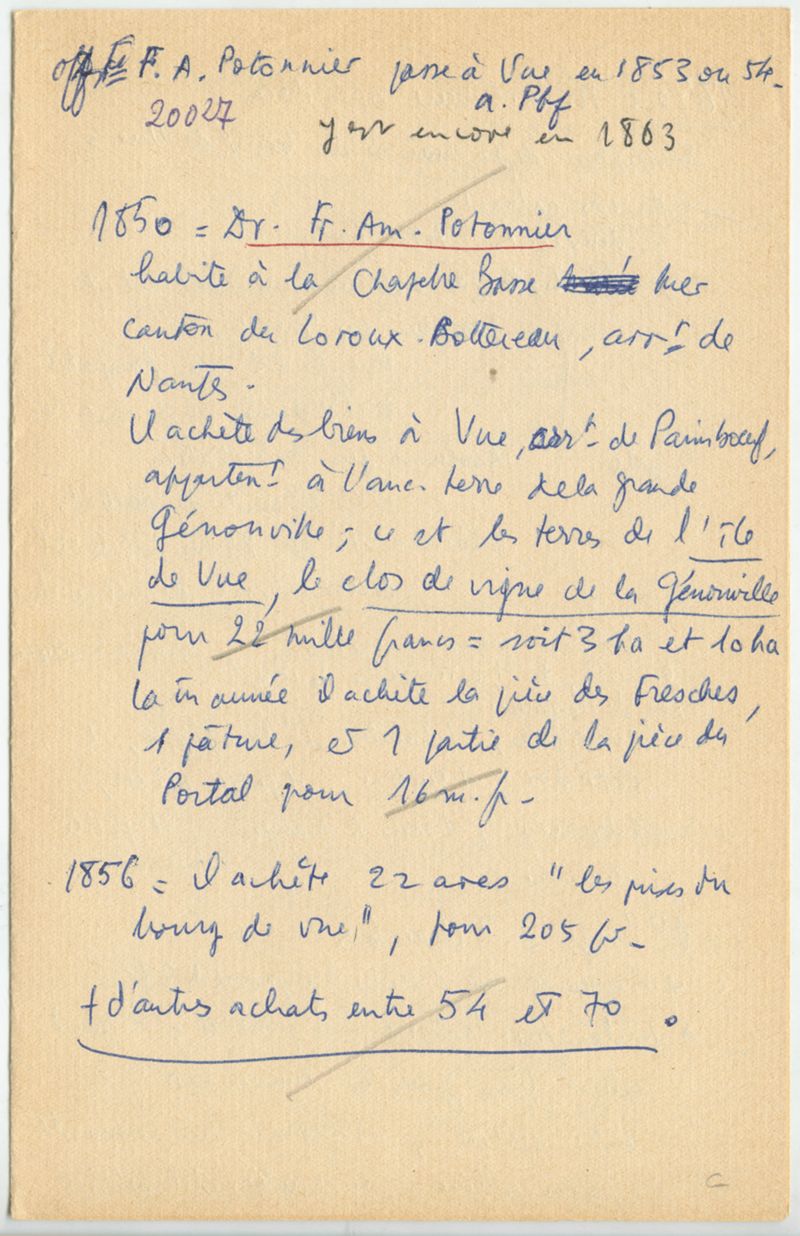 off. F. A. Potonnier passe à Vue en 1853 ou 54.
a. Pbf
20027
y est encore en 1863
1850 = Dr. Fr. Am. Potonnier
habite à la Chapelle Basse Mer
canton du Loroux-Bottereau, arrt de
Nantes.
Il achète des biens à Vue, arrt de Paimboeuf,
appartent à l'anc. terre de la grande
Génonville; ce st les terres de l'île
de Vue, le clos de vigne de la Génonville
pour 22 mille francs = soit 3 ha et 10 ha
la m année il achète la pièce des Fresches,
1 pâture, et 1 partie de la pièce du
Portal pour 16 m. fr.
1856 = il achète 22 ares "les prises du
bourg de Vue", pour 205 fr.
+ d'autres achats entre 54 et 70.